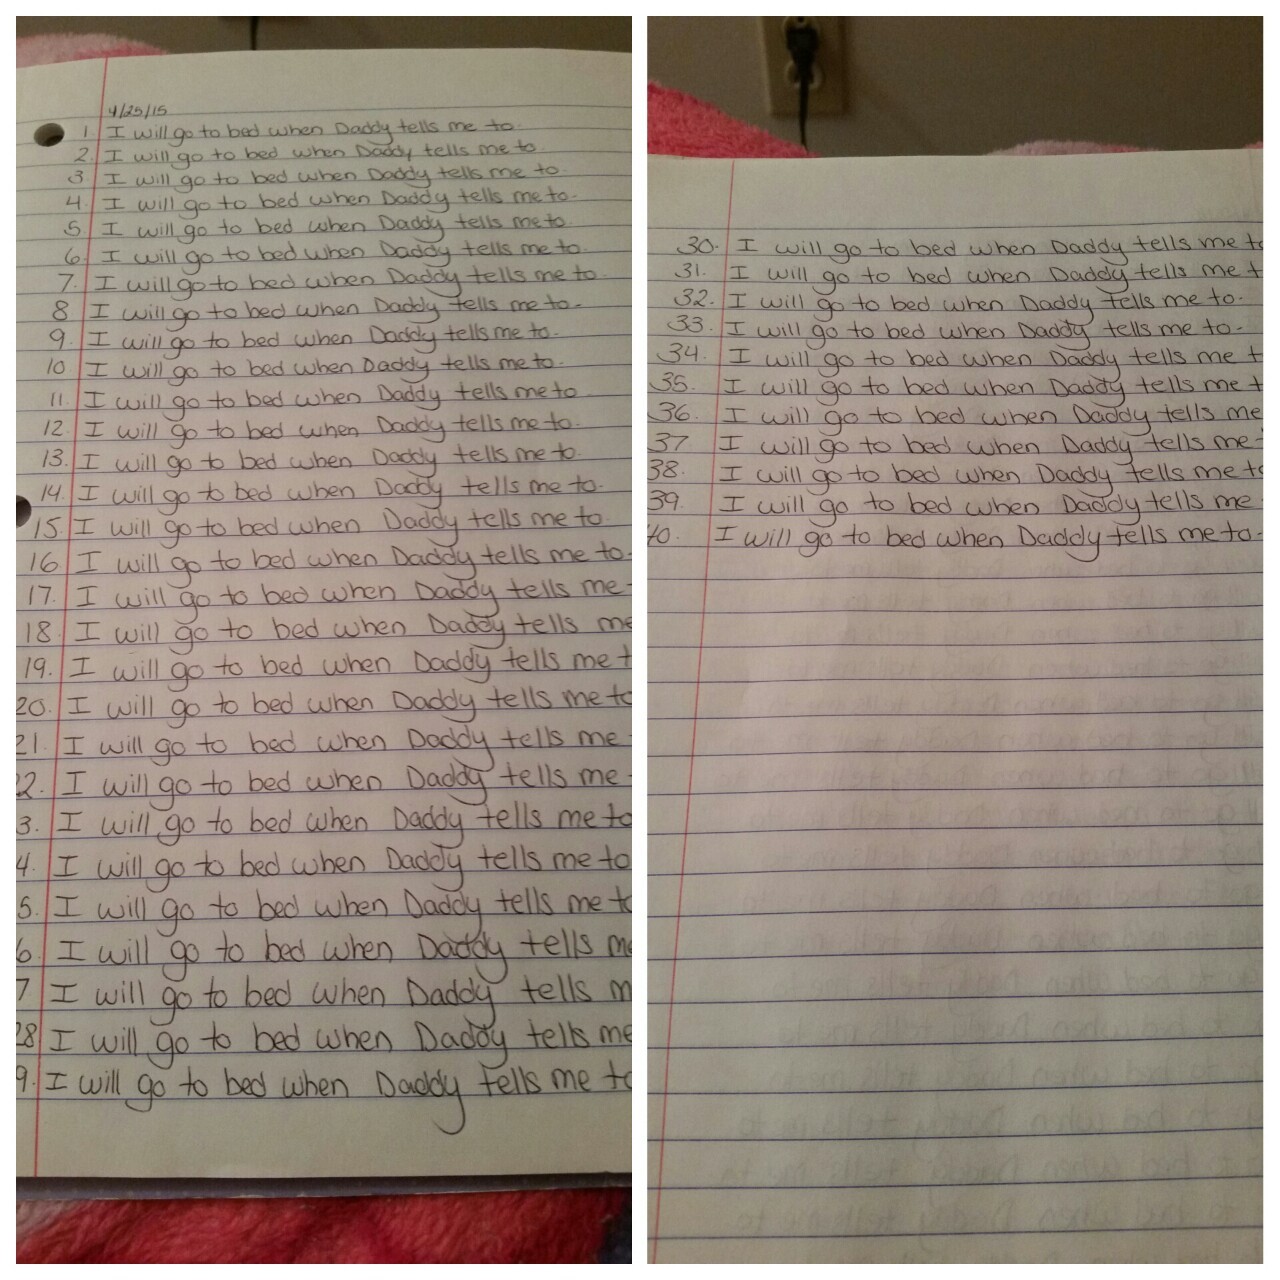 4/25/15
1. I will go to bed when Daddy tells me to.
2. I will go to bed when Daddy tells me to.
3. I will go to bed when Daddy tells me to.
4. I will go to bed when Daddy tells me to.
5. I will go to bed when Daddy tells me to.
6. I will go to bed when Daddy tells me to.
7. I will go to bed when Daddy tells me to.
8 I will go to bed when Daddy tells me to.
9. I will go to bed when Daddy tells me to.
10 I will go to bed when Daddy tells me to.
11. I will go to bed when Daddy tells me to.
12. I will go to bed when Daddy tells me to.
13. I will go to bed when Daddy tells me to.
14. I will go to bed when Daddy tells me to.
15. I will go to bed when Daddy tells me to.
16. I will go to bed when Daddy tells me to.
17. I will go to bed when Daddy tells me
18. I will go to bed when Daddy tells me
19. I will go to bed when Daddy tells me t
20. I will go to bed when Daddy tells me to
21. I will go to bed when Daddy tells me
2. I will go to bed when Daddy tells me
3. I will go to bed when Daddy tells me to
4. I will go to bed when Daddy tells me to
5. I will go to bed when Daddy tells me to
6. I will go to bed when Daddy tells me
7 I will go to bed when Daddy tells m
28 I will go to bed when Daddy tells me
9. I will go to bed when Daddy tells me to
30. I will go to bed when Daddy tells me to
31. I will go to bed when Daddy tells me t
32. I will go to bed when Daddy tells me to.
33. I will go to bed when Daddy tells me to.
34. I will go to bed when Daddy tells me t
35. I will go to bed when Daddy tells me t
36. I will go to bed when Daddy tells me
37 I will go to bed when Daddy tells me
38. I will go to bed when Daddy tells me to
39. I will go to bed when Daddy tells me
40. I will go to bed when Daddy tells me to.